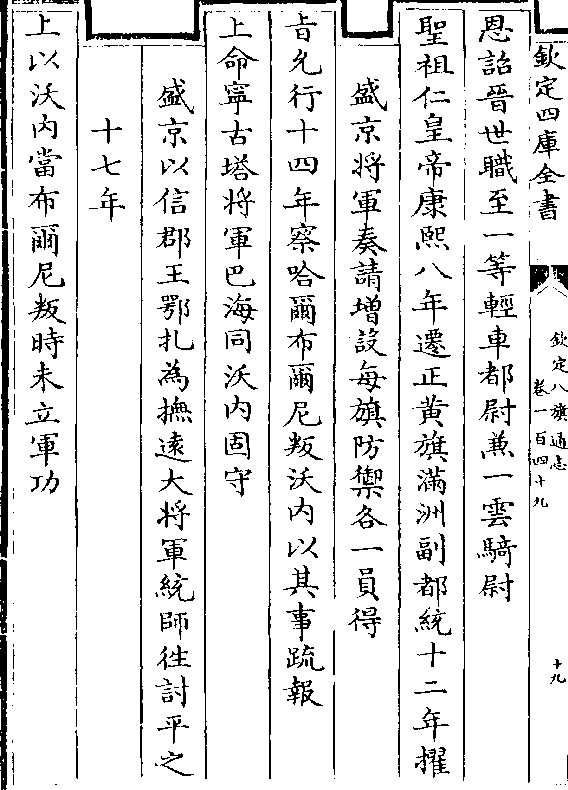 欽定四庫全書
欽定八旗通志
卷一百四十九
十九
恩詔晉世職至一等輕車都尉兼一雲騎尉
聖祖仁皇帝康熙八年遷正黃旗滿洲副都統十二年擢
盛京将軍奏請增設每旗防禦各一員得
㫖允行十四年察哈爾布爾尼叛沃内以其事疏報
上命寧古塔将軍巴海同沃内固守
盛京以信郡王鄂扎為撫逺大将軍統師徃討平之
十七年
上以沃内當布爾尼叛時未立軍功